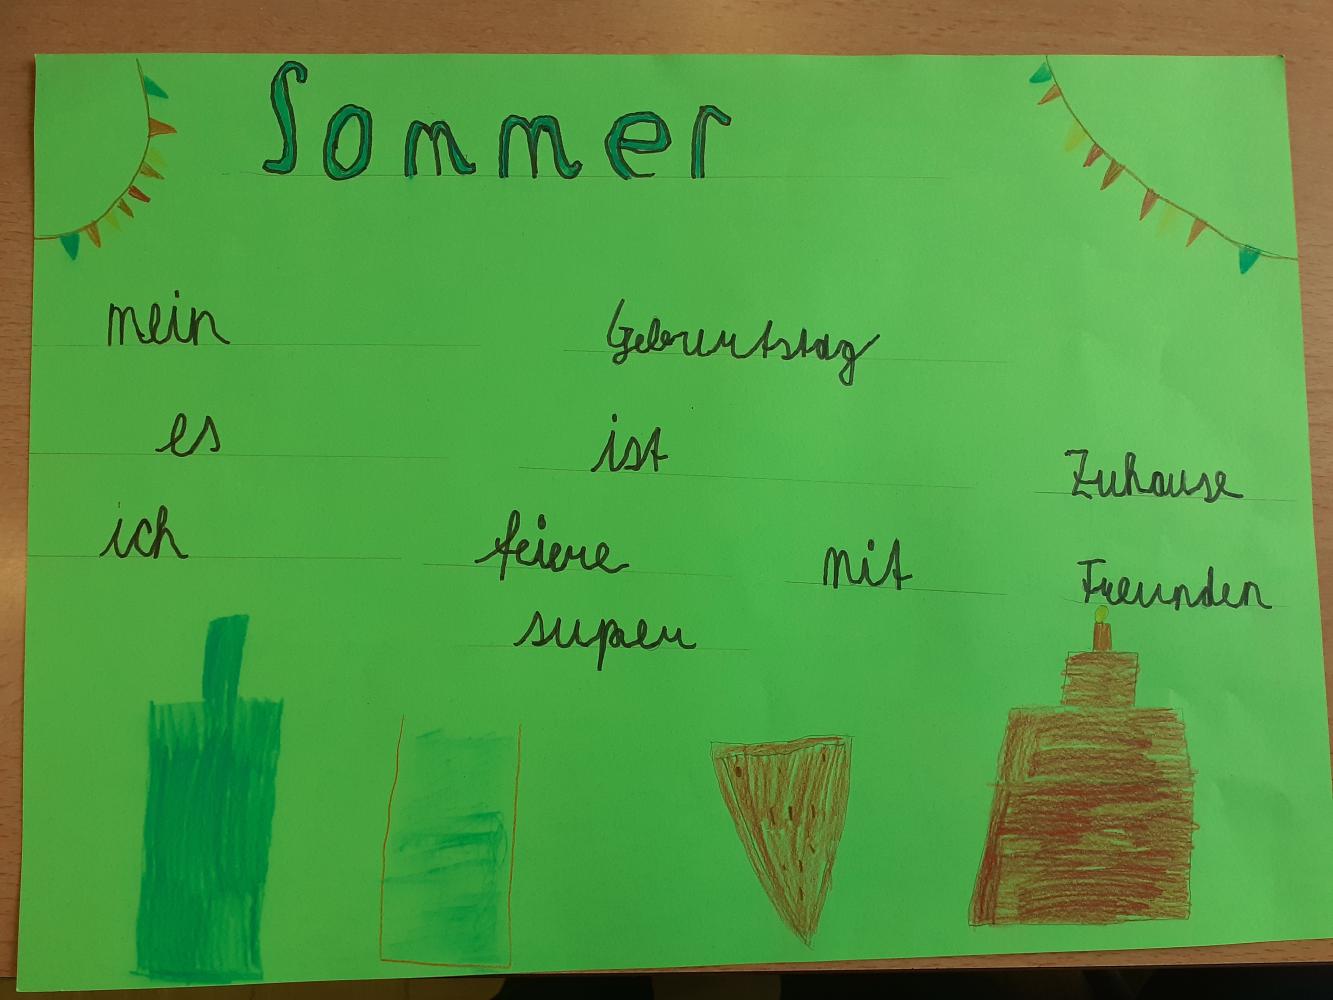 Sommer
mein Geburtstag
es ist Zuhause
ich feiere mit Freunden
super